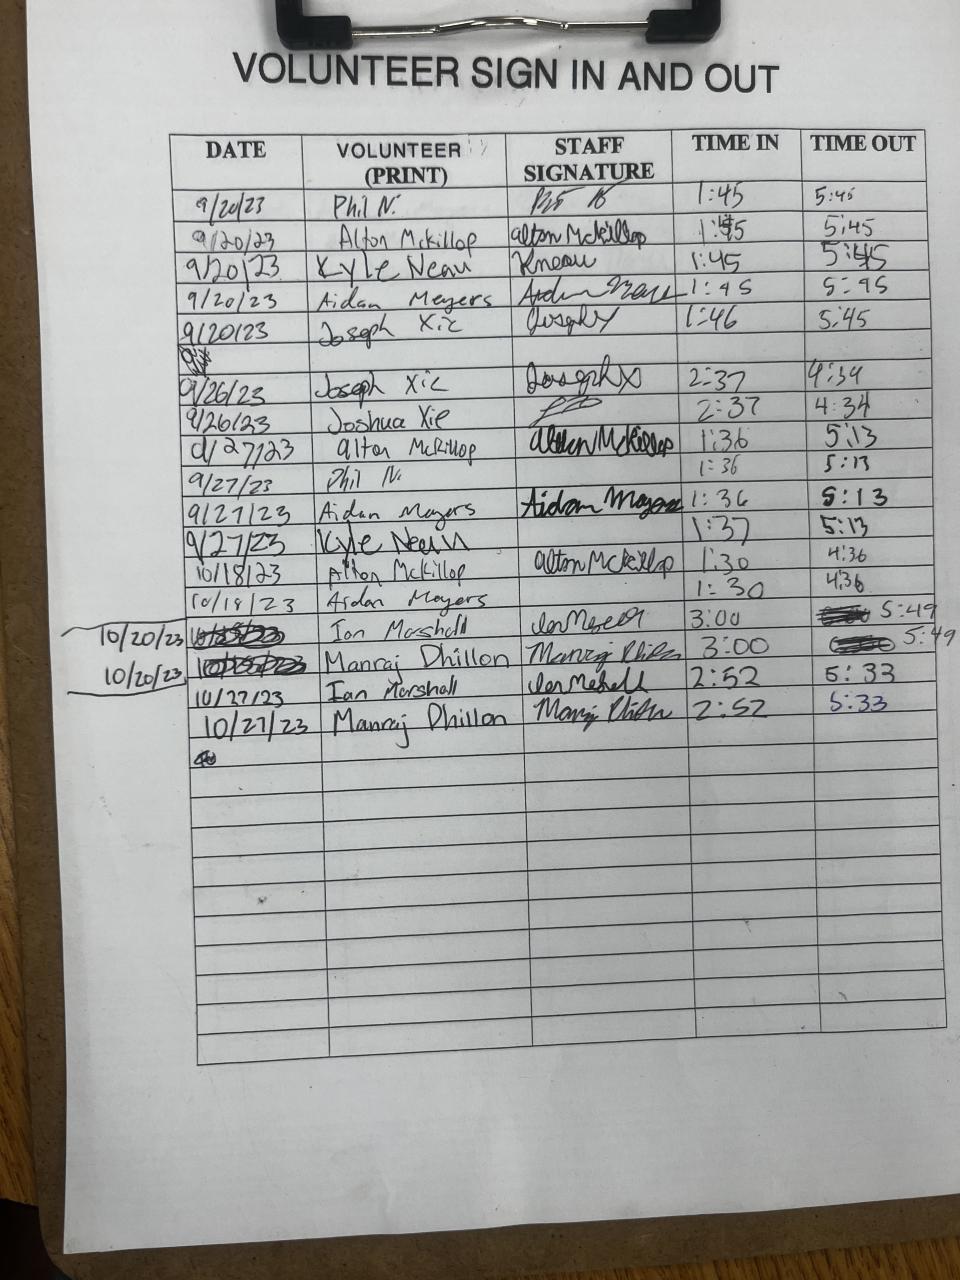 VOLUNTEER SIGN IN AND OUT
DATE VOLUNTEER (PRINT) STAFF SIGNATURE TIME IN TIME OUT
9/20/23 Phil N. 1:45 5:45
9/20/23 Alton McKillop alton McKillop 1:45 5:45
9/20/23 Kyle Neau Kneau 1:45 5:45
9/20/23 Aidan Meyers Aidan 1:45 5:45
9/20/23 Joseph Xie JosephX 1:46 5:45
9/26/23 Joseph Xie JosephX 2:37 4:34
9/26/23 Joshua Xie 2:37 4:34
9/27/23 alton McKillop alton McKillop 1:36 5:13
9/27/23 Phil N. 1:36 5:13
9/27/23 Aidan Meyers Aidan Meyers 1:36 5:13
9/27/23 Kyle Neau 1:37 5:13
10/18/23 Alton McKillop alton McKillop 1:30 4:36
10/18/23 Aidan Meyers 1:30 4:36
10/20/23 Ian Marshall 3:00 5:49
10/20/23 Manraj Dhillon Manraj Dhillon 3:00 5:49
10/27/23 Ian Marshall 2:52 5:33
10/27/23 Manraj Dhillon Manraj Dhillon 2:52 5:33